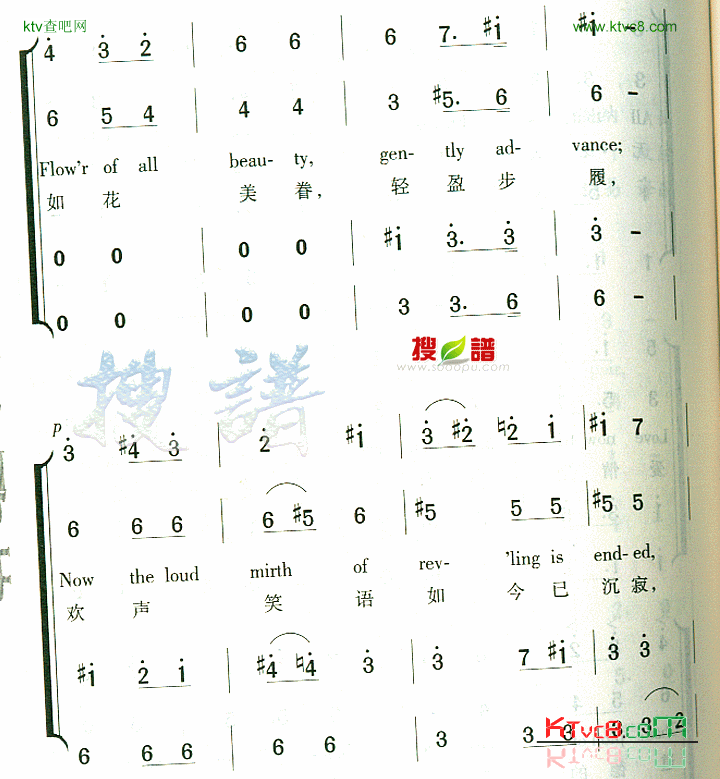 ktv查吧网
www.ktvc8.com
4 3 2 6 6 6 7. #1 #1 –
6 5 4 4 4 3 #5. 6 6 –
Flow'r of all beau- ty, gen- tly ad- vance;
如 花 美 眷, 轻 盈 步 履,
0 0 0 0 #1 3. 3 3 –
0 0 0 0 3 3. 6 6 –
搜谱
www.sooopu.com
搜谱
p
3 #4 3 2 #1 3 #2 ♮2 1 #1 7
6 6 6 6 #5 6 #5 5 5 #5 5
Now the loud mirth of rev- 'ling is end-ed,
欢 声 笑 语 如 今 已 沉 寂,
#1 2 1 #4 ♮4 3 3 7 #1 3 3
6 6 6 6 6 3 3 3 3. 3 2
KTvc8.com